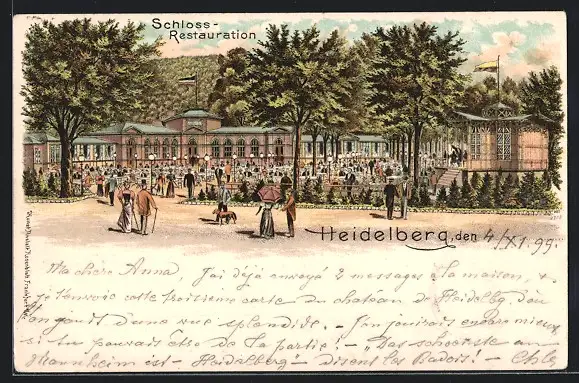 Schloss-
Restauration
Heidelberg, den 4/XI 99.
Ma chère Anna, J'ai déjà envoyé 2 messages à la maison, &
je t'envoie cette troisième carte du château de Heidelbg. d'où
l'on jouit d'une vue splendide. - J'en jouirais encore mieux
si tu pouvais être de la partie! - Das schoenste an
Mannheim ist - Heidelberg" - disent les Badois! -